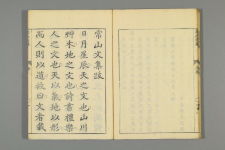 常山文集跋
日月星辰天之文也山川
艸木地之文也詩書禮樂
人之文也天以氣地以形
而人則以道故曰文者載